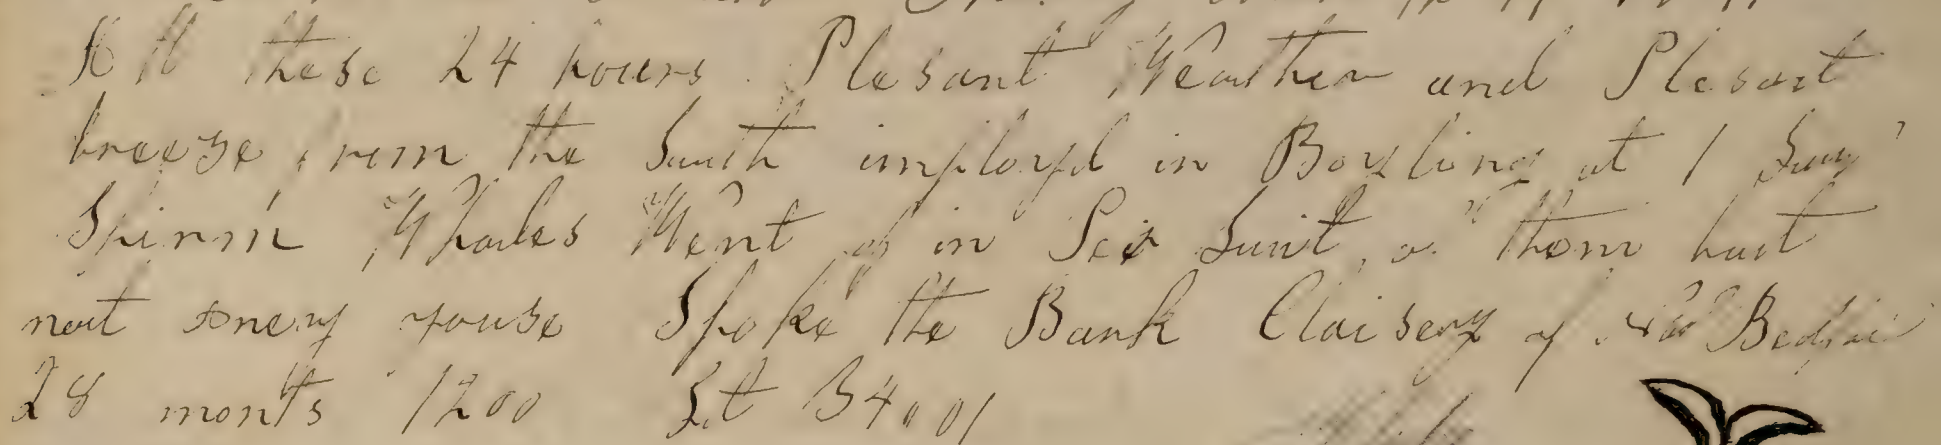 All these 24 hours Plesant Weather and Plesant
breeze from the South imployd in Boyling at 1 Saw
Spirm Whales Went of in Pesuit of them but
not eney youse Spoke the Bark Claisery of New Bedford
28 monts 1200 Lat 34,,01